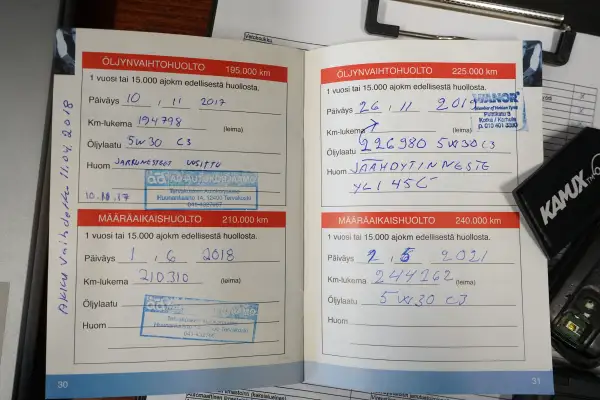 ÖLJYNVAIHTOHUOLTO 195.000 km
1 vuosi tai 15.000 ajokm edellisestä huollosta.
Päiväys 10 , 11 2017
Km-lukema 194798 (leima)
Öljylaatu 5W30 C3
Huom JARRUNESTEET UUSITTU
ad AD-AUTOKORJAAMO
10.11.17
MÄÄRÄAIKAISHUOLTO 210.000 km
1 vuosi tai 15.000 ajokm edellisestä huollosta.
Päiväys 1 , 6 2018
Km-lukema 210310 (leima)
Öljylaatu
Huom
30
AKKU Vaihdettu 11.04.2018
ÖLJYNVAIHTOHUOLTO 225.000 km
1 vuosi tai 15.000 ajokm edellisestä huollosta.
Päiväys 26 , 11 2019
WIANOR
Km-lukema (leima)
Öljylaatu 226980 5W30 C3
Huom JÄÄHDYTINNESTE
YLI 45C
MÄÄRÄAIKAISHUOLTO 240.000 km
1 vuosi tai 15.000 ajokm edellisestä huollosta.
Päiväys 2 , 5 2021
Km-lukema 244262 (leima)
Öljylaatu 5W30 C3
Huom
31
KAMUX